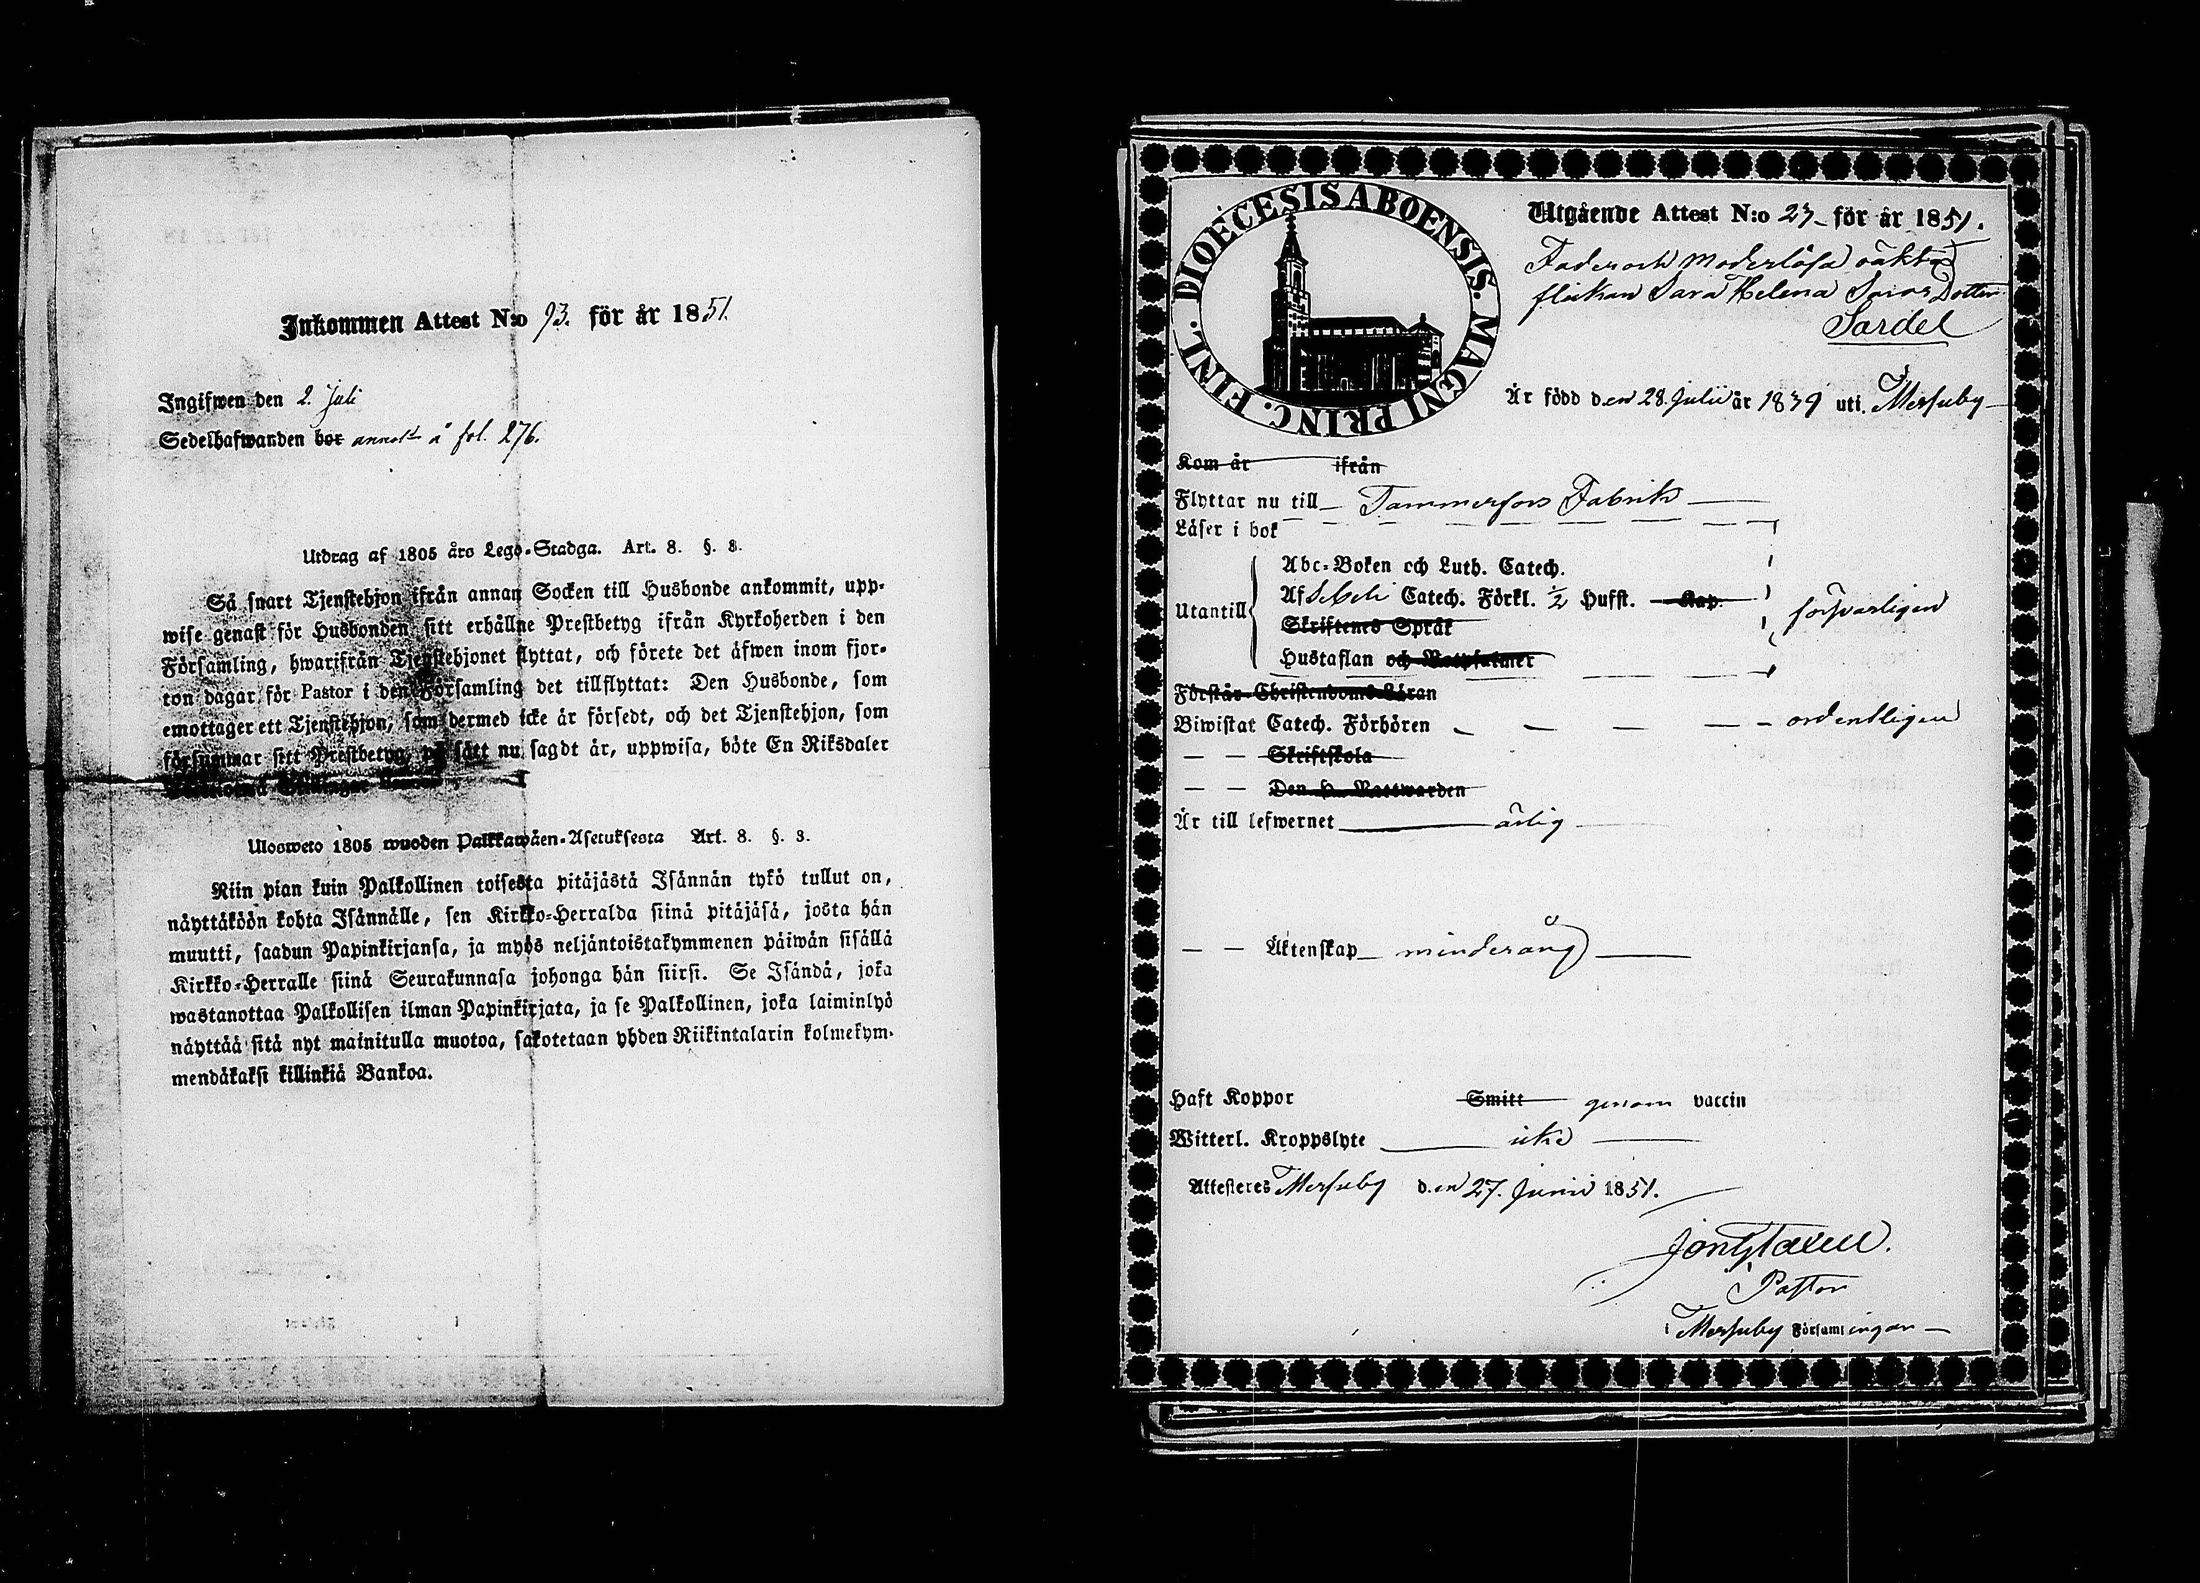 Inkommen Attest N:o 93. för år 1851.
Ingifwen den 2. Juli
Sedelhafwanden bor annot. å fol. 276.
Utdrag af 1805 års Lego-Stadga. Art. 8. §. 3.
Så snart Tjenstehjon ifrån annan Socken till Husbonde ankommit, upp-
wise genast för Husbonden sitt erhållne Prestbetyg ifrån Kyrkoherden i den
Församling, hwarifrån Tjenstehjonet flyttat, och förete det äfwen inom fjor-
ton dagar för Pastor i den Församling det tillflyttat: Den Husbonde, som
emottager ett Tjenstehjon, som dermed icke är försedt, och det Tjenstehjon, som
försummar sitt Prestbetyg, på sätt nu sagdt är, uppwisa, böte En Riksdaler
Ulosweto 1805 wuoden Palkkawäen-Asetuksesta Art. 8. §. 3.
Niin pian kuin Palkollinen toisesta pitäjästä Isännän tykö tullut on,
näyttäköön kohta Isännälle, sen Kirkko-Herralda siinä pitäjäsä, josta hän
muutti, saadun Papinkirjansa, ja myös neljäntoistakymmenen päiwän sisällä
Kirkko-Herralle siinä Seurakunnasa johonga hän siirsi. Se Isändä, joka
wastanottaa Palkollisen ilman Papinkirjata, ja se Palkollinen, joka laiminlyö
näyttää sitä nyt mainitulla muotoa, sakotetaan yhden Riikintalarin kolmekym-
mendäkaksi killinkiä Bankoa.
DIOECESIS ABOENSIS. MAGNI PRINC. FINL.
Utgående Attest N:o 23 för år 1851.
Fader och Moderlösa
flickan Sara Helena Dotter
Sardel
Är född den 28. Julii år 1839 uti
Kom år ifrån
Flyttar nu till Tammerfors Fabrik
Läser i bok
Abc-Boken och Luth. Catech.
Utantill Af Sebeli Catech. Förkl. 1/2 Husft. Kap.
försvarligen
Skriftenes Språk
Hustaflan och Bottpsalmer
Förstår Christendoms-Läran
Biwistat Catech. Förhören ordentligen
Skriftskola
Den H. Nattwarden
Är till lefwernet ärlig
Äktenskap minderårig
Haft Koppor Smitt genom vaccin
Witterl. Kroppslyte icke
Attesteres den 27. Junii 1851.
Pastor
i Församlingar